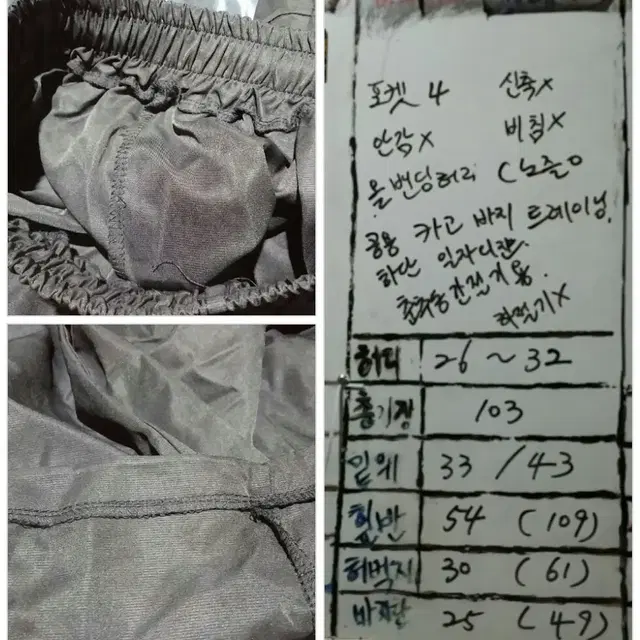 포켓 4 신축X
안감X 비침X
올 밴딩허리 (노줄O
공용 카고 바지 트레이닝.
하단 일자디자인.
춘추용간절기용.
허리 26~32
총기장 103
밑위 33 / 43
힙반 54 (109)
허벅지 30 (61)
바지단 25 (49)